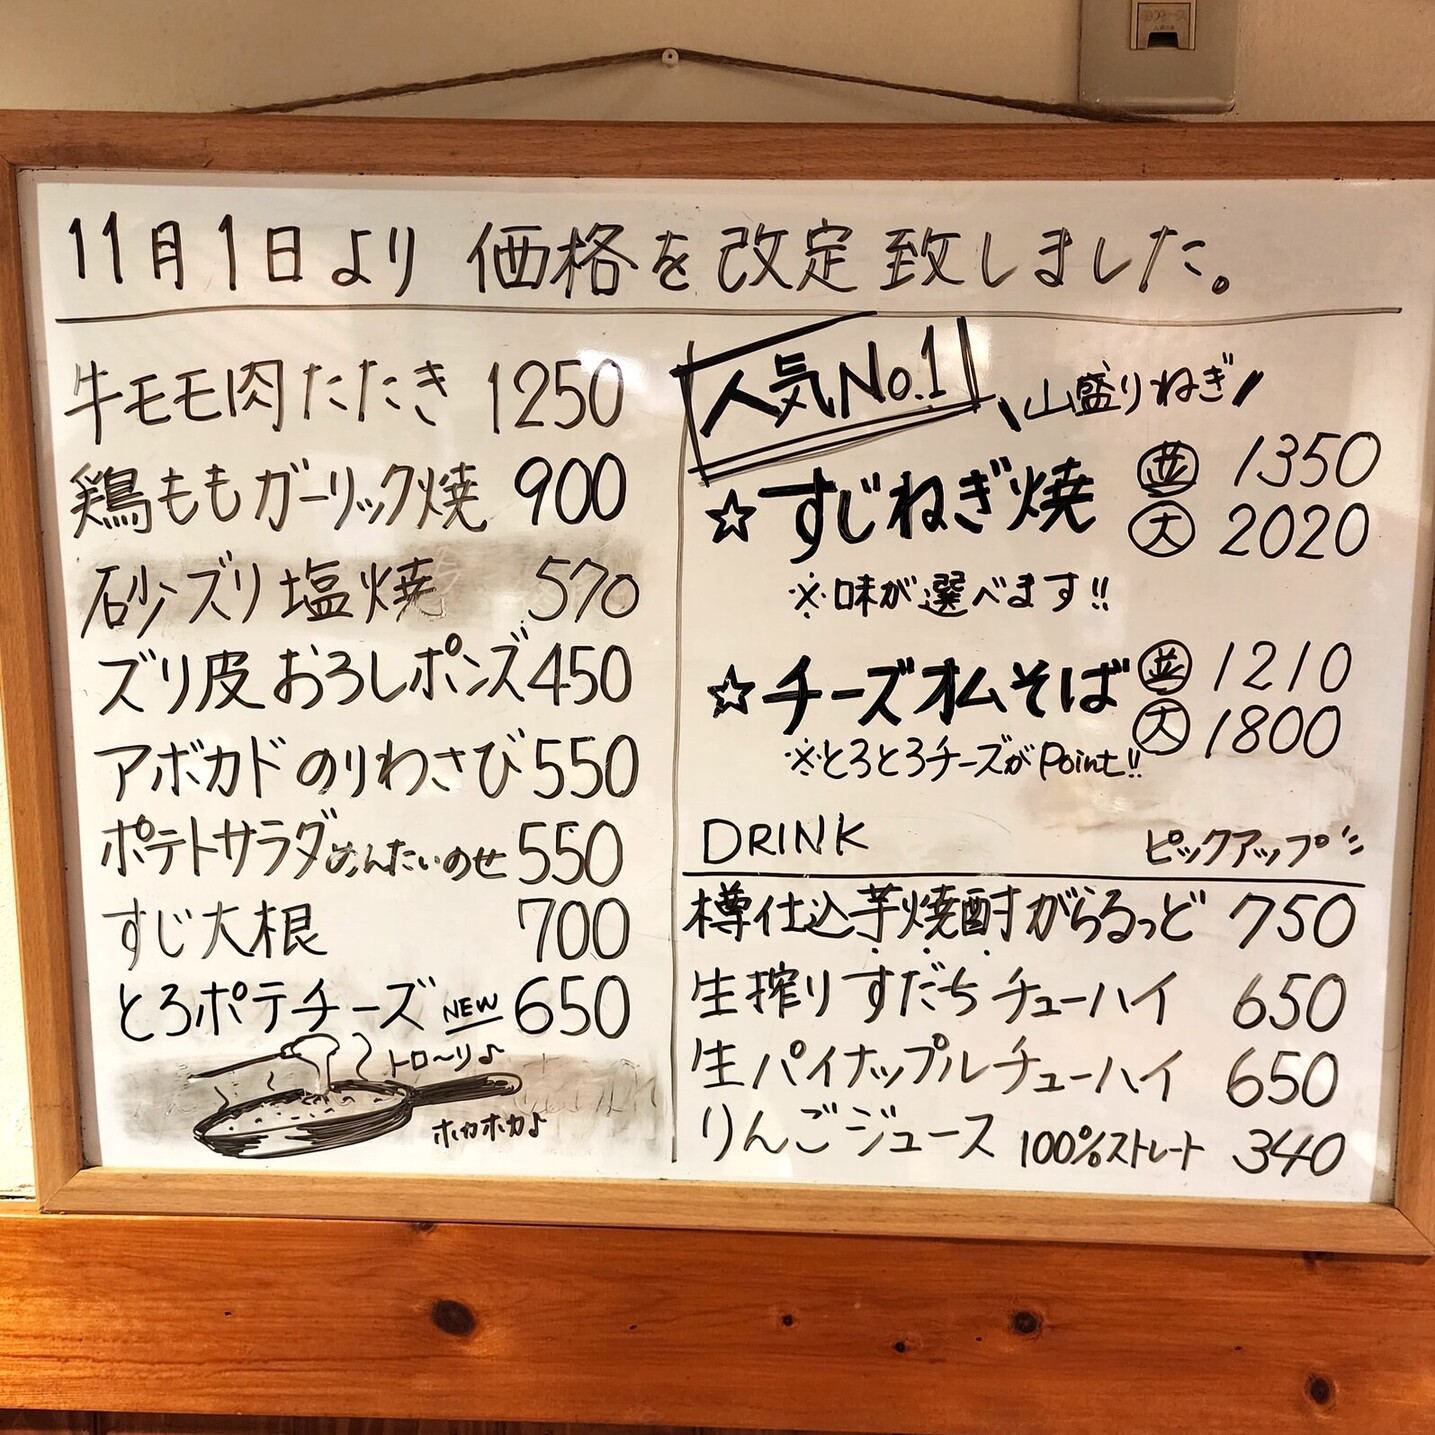 11月1日より 価格を改定致しました。
牛モモ肉たたき 1250
鶏ももガーリック焼 900
砂ズリ塩焼 570
ズリ皮おろしポンズ 450
アボカドのりわさび 550
ポテトサラダめんたいのせ 550
すじ大根 700
とろポテチーズ NEW 650
トロ〜リ♪
ホカホカ♪
人気No.1
\山盛りねぎ/
☆すじねぎ焼 並 1350
大 2020
※味が選べます!!
☆チーズオムそば 並 1210
大 1800
※とろとろチーズがPoint!!
DRINK ピックアップ
樽仕込芋焼酎がらるっど 750
生搾りすだちチューハイ 650
生パイナップルチューハイ 650
りんごジュース 100%ストレート 340